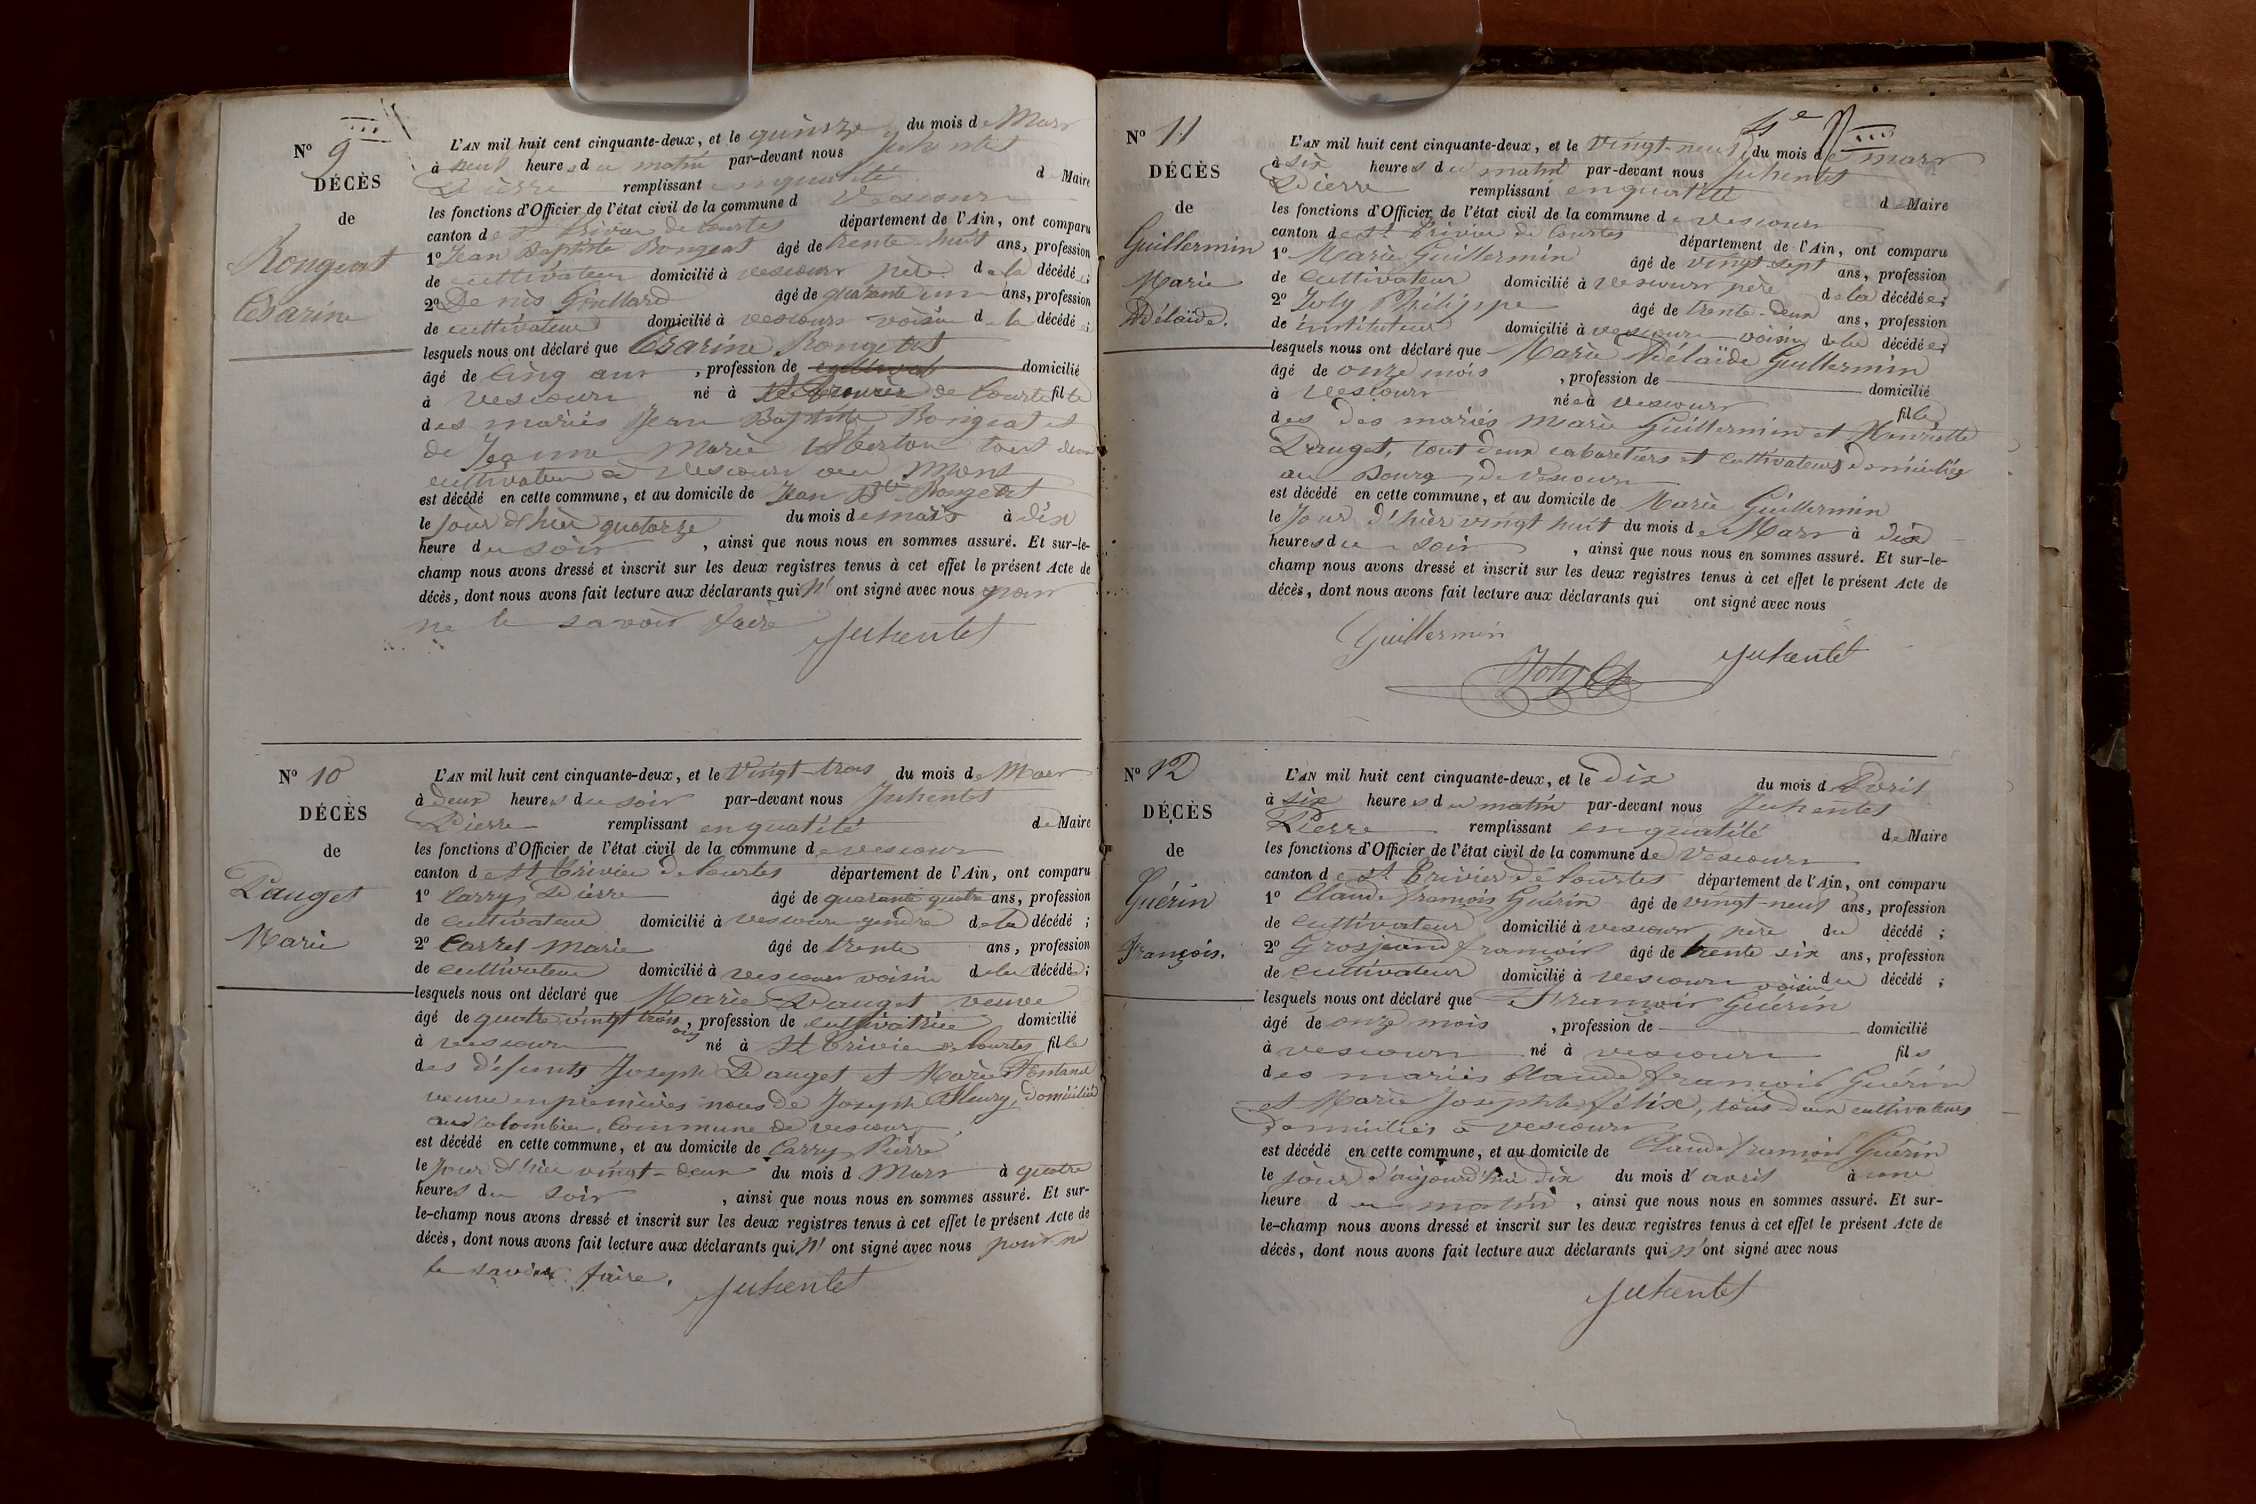 Nº 9
DÉCÈS
de
Rongeat
Césarine
L'AN mil huit cent cinquante-deux, et le quinze du mois de Mars
à neuf heures du matin par-devant nous Juhentet
Pierre remplissant en qualité de Maire
les fonctions d'Officier de l'état civil de la commune d Vescours
canton de St Trivier de Courtes département de l'Ain, ont comparu
1º Jean Baptiste Rongeat âgé de trente-huit ans, profession
de cultivateur domicilié à vescours père de la décédée;
2º Denis Guillard âgé de quarante un ans, profession
de cultivateur domicilié à vescours voisin de la décédée;
lesquels nous ont déclaré que Césarine Rongeat
âgé de Cinq ans, profession de domicilié
à Vescours né à St Trivier de Courtes fille
des mariés Jean Baptiste Rongeat et
de Jeanne Marie tout deux
cultivateur à Vescours au
est décédé en cette commune, et au domicile de Jean Bte Rongeat
le jour d'hier quatorze du mois de mars à dix
heure du soir, ainsi que nous nous en sommes assuré. Et sur-le-
champ nous avons dressé et inscrit sur les deux registres tenus à cet effet le présent Acte de
décès, dont nous avons fait lecture aux déclarants qui n' ont signé avec nous pour
ne le savoir faire
Juhentet
Nº 10
DÉCÈS
de
Pauget
Marie
L'AN mil huit cent cinquante-deux, et le Vingt-trois du mois de Mars
à deux heures du soir par-devant nous Juhentet
Pierre remplissant en qualité de Maire
les fonctions d'Officier de l'état civil de la commune de vescours
canton de St Trivier de Courtes département de l'Ain, ont comparu
1º Carry Pierre âgé de quarante quatre ans, profession
de cultivateur domicilié à vescours gendre de la décédé;
2º Carret Marie âgé de trente ans, profession
de cultivateur domicilié à vescours voisin de la décédé;
lesquels nous ont déclaré que Marie Pauget veuve
âgé de quatre vingt trois ans, profession de cultivatrice domicilié
à vescours né à St Trivier de Courtes fille
des défunts Joseph Pauget et Marie Fontanel
veuve en premières noces de Joseph Fleury, domiciliée
au Colombier, commune de vescours,
est décédé en cette commune, et au domicile de Carry Pierre
le jour d'hier vingt-deux du mois d Mars à quatre
heures du soir, ainsi que nous nous en sommes assuré. Et sur-
le-champ nous avons dressé et inscrit sur les deux registres tenus à cet effet le présent Acte de
décès, dont nous avons fait lecture aux déclarants qui n' ont signé avec nous pour ne
le savoir faire.
Juhentet
Nº 11
DÉCÈS
de
Guillermin
Marie
Adélaïde.
L'AN mil huit cent cinquante-deux, et le Vingt-neuf du mois de mars
à six heures du matin par-devant nous Juhentet
Pierre remplissant en qualité de Maire
les fonctions d'Officier de l'état civil de la commune de vescours
canton de St Trivier de Courtes département de l'Ain, ont comparu
1º Marie Guillermin âgé de vingt sept ans, profession
de Cultivateur domicilié à Vescours père de la décédée;
2º Joly Philippe âgé de trente-deux ans, profession
de instituteur domicilié à vescours voisin de la décédée;
lesquels nous ont déclaré que Marie Adélaïde Guillermin
âgé de onze mois, profession de domicilié
à Vescours née à vescours fille
des des mariés Marie Guillermin et Henriette
Pauget, tout deux cabaretiers et cultivateurs domiciliés
au Bourg de Vescours
est décédé en cette commune, et au domicile de Marie Guillermin
le Jour d'hier vingt huit du mois de Mars à dix
heures du soir, ainsi que nous nous en sommes assuré. Et sur-le-
champ nous avons dressé et inscrit sur les deux registres tenus à cet effet le présent Acte de
décès, dont nous avons fait lecture aux déclarants qui ont signé avec nous
Guillermin
Joly Juhentet
Nº 12
DÉCÈS
de
Guérin
François.
L'AN mil huit cent cinquante-deux, et le Dix du mois d Avril
à six heures du matin par-devant nous Juhentet
Pierre remplissant en qualité de Maire
les fonctions d'Officier de l'état civil de la commune de Vescours
canton de St Trivier de Courtes département de l'Ain, ont comparu
1º Claude françois Guérin âgé de vingt-neuf ans, profession
de cultivateur domicilié à vescours père du décédé;
2º Grosjean françois âgé de trente six ans, profession
de cultivateur domicilié à vescours voisin du décédé;
lesquels nous ont déclaré que François Guérin
âgé de onze mois, profession de domicilié
à vescours né à vescours fils
des mariés Claude françois Guérin
et Marie Josephte félix, tous deux cultivateurs
domiciliés à vescours
est décédé en cette commune, et au domicile de Claude françois Guérin
le jour d'aujourd'hui dix du mois d'avril à une
heure du matin, ainsi que nous nous en sommes assuré. Et sur-
le-champ nous avons dressé et inscrit sur les deux registres tenus à cet effet le présent Acte de
décès, dont nous avons fait lecture aux déclarants qui n'ont signé avec nous
Juhentet